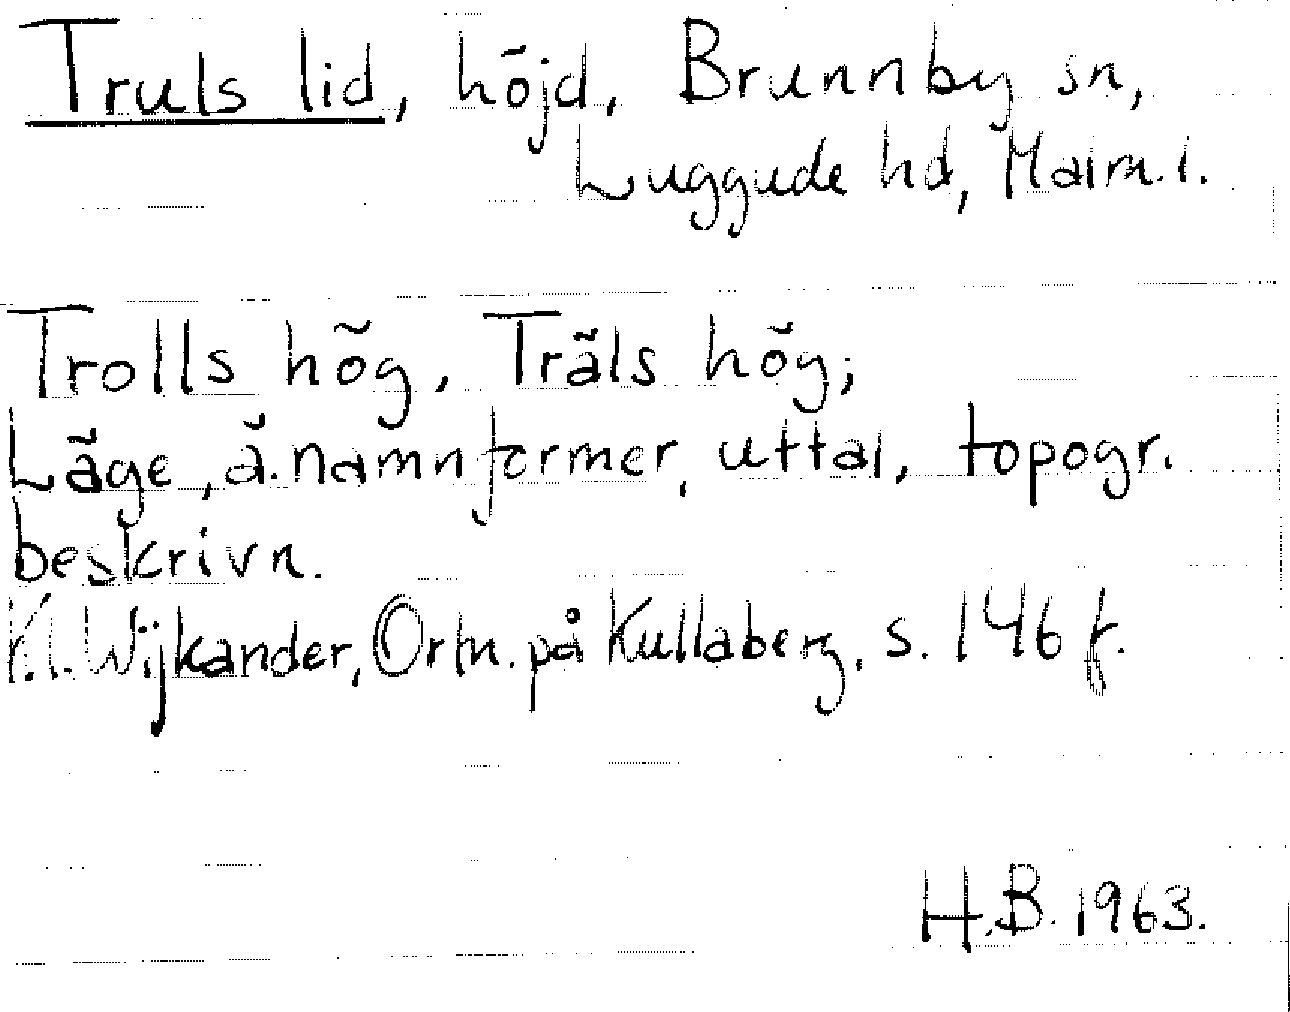 Truls lid, höjd, Brunnby sn,
Luggude hd, Malm. l.
Trolls hög, Träls hög;
Läge, ä. namnformer, uttal, topogr.
beskrivn.
K.I. Wijkander, Ortn. på Kullaberg, s. 146 f.
H.B. 1963.